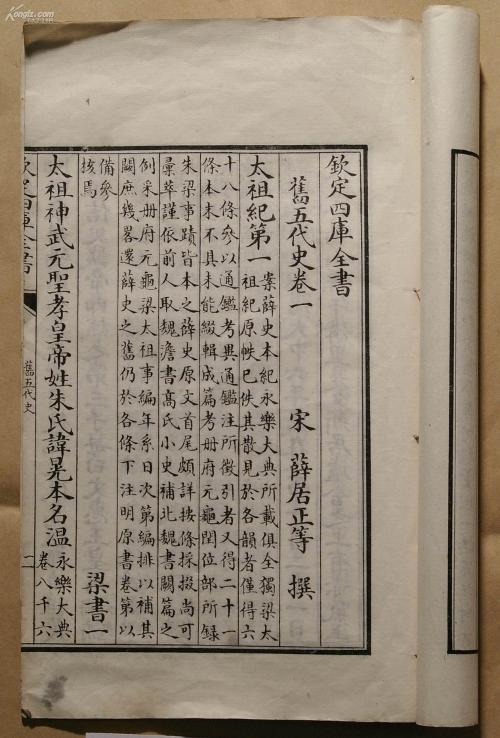 Kongfz.com
欽定四庫全書
舊五代史卷一 宋 薛居正等 撰
太祖紀第一
案薛史本紀永樂大典所載俱全獨梁太
祖紀原帙已佚其散見於各韻者僅得六
十八條參以通鑑考異通鑑注所徵引者又得二十一
條本末不具未能綴輯成篇考册府元龜閏位部所録
朱梁事蹟皆本之薛史原文首尾頗詳按條採掇尚可
彙萃謹依前人取魏澹書高氏小史補北魏書闕篇之
例采册府元龜梁太祖事編年系日次第編排以補其
闕庶幾畧還薛史之舊仍於各條下注明原書卷第以
備參
核焉
梁書一
太祖神武元聖孝皇帝姓朱氏諱晃本名温
永樂大典
卷八千六
欽定四庫全書
舊五代史